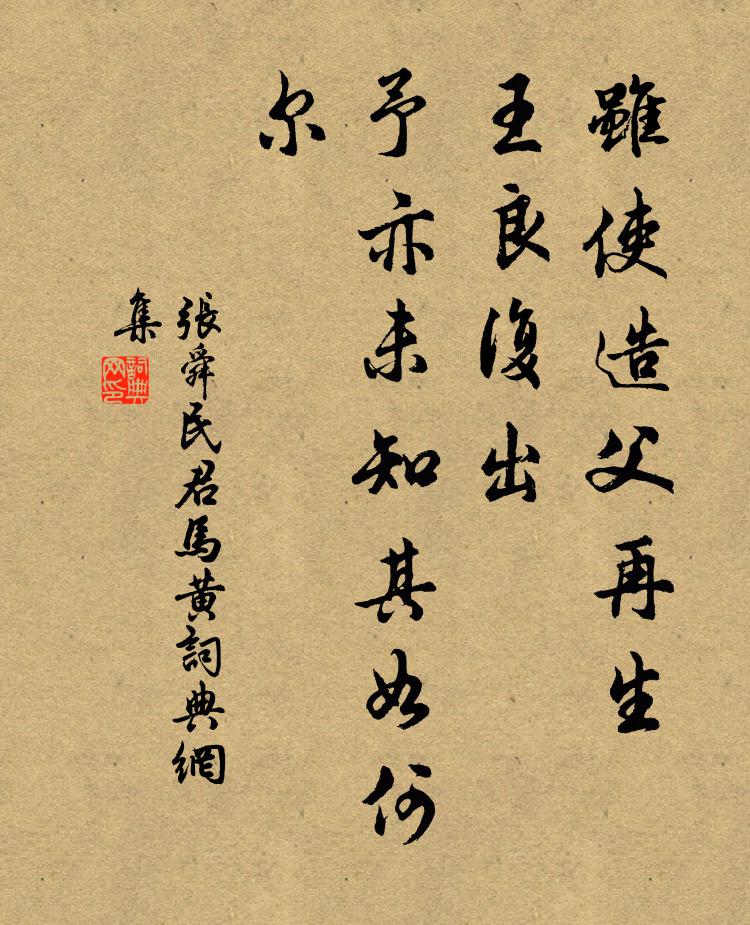 雖使造父再生
王良復出
予亦未知其如何
尔
張舜民君馬黄詞典網
集
詞典
网印